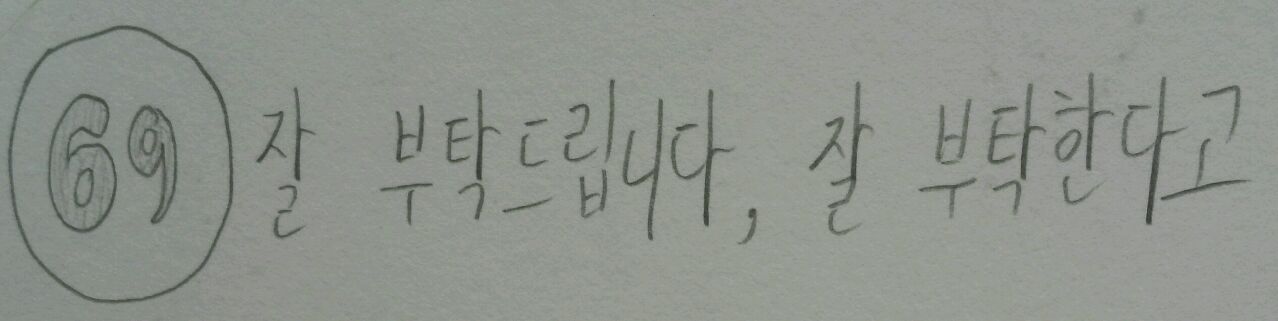 69 잘 부탁드립니다, 잘 부탁한다고